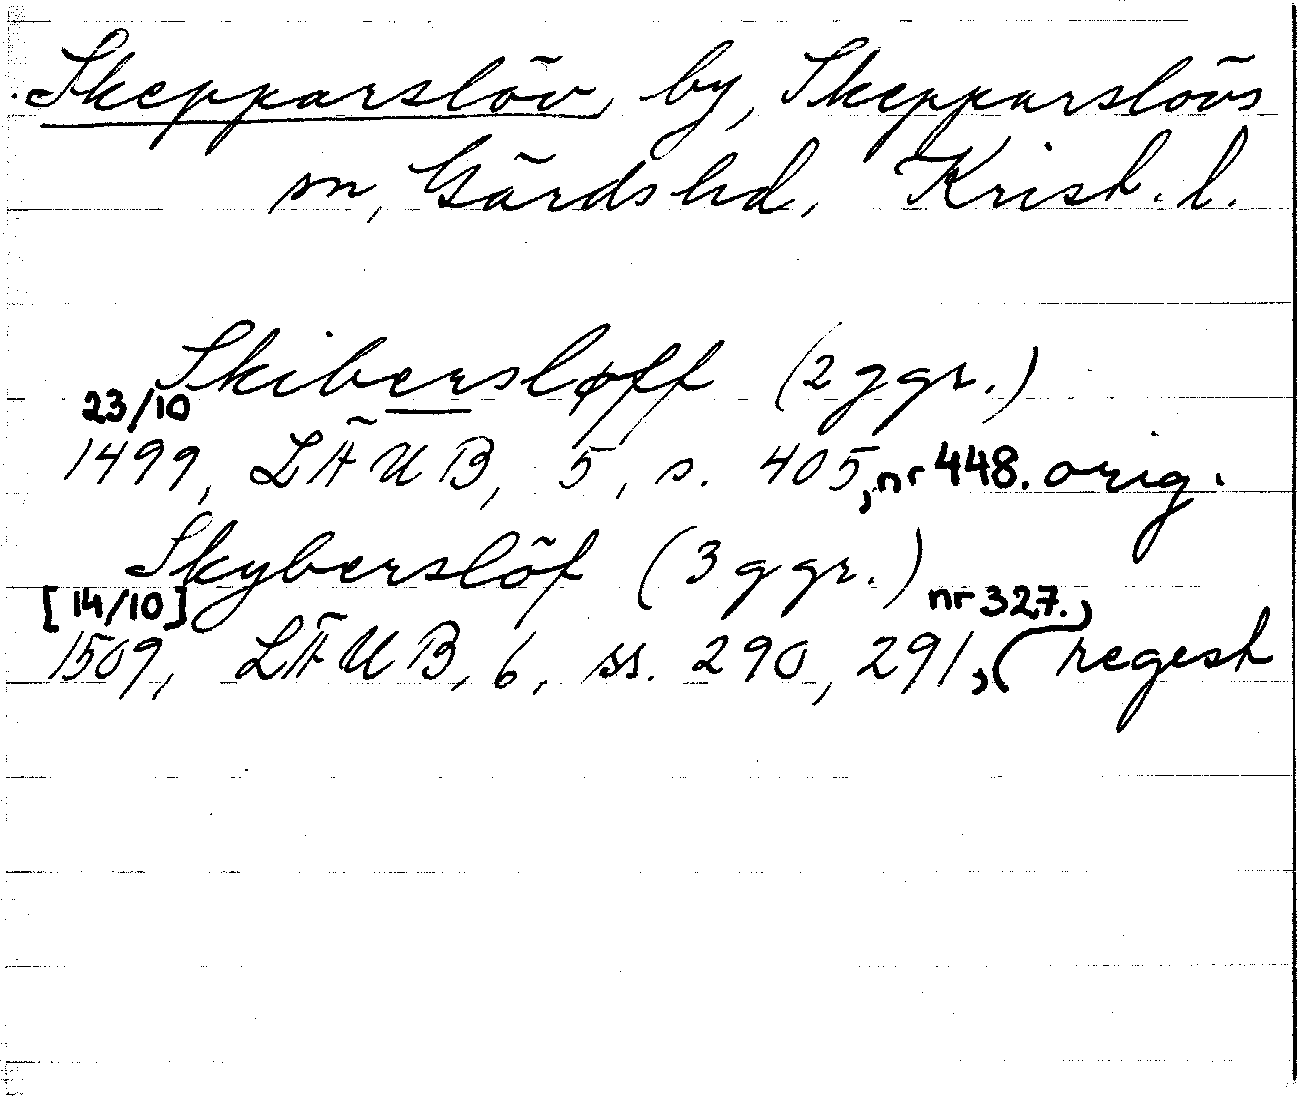 Skepparslöv, by, Skepparslövs
sn, Gärds hd, Krist. l.
Skibersløff (2 ggr.)
23/10
1499, LÄUB, 5, s. 405, nr 448. orig.
Skyberslöf (3 ggr.)
[14/10] nr 327.,
1509, LÄUB, 6, ss. 290, 291, regest